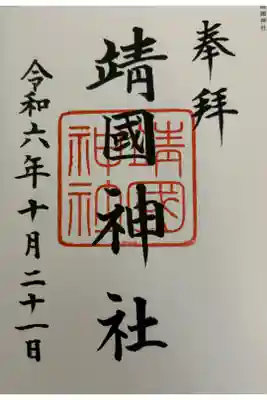 奉拝
靖國神社
靖國
神社
令和六年十月二十一日
靖國神社